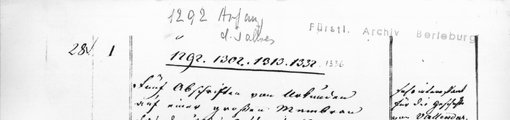 1292 Anfang
d. Jahres
Fürstl. Archiv Berleburg
28. 1
1292. 1302. 1313. 1332. 1336
Fünf Abschriften von Urkunden
auf einer großen Membran
Insbesondere
für die Geschichte
von Vallendar.